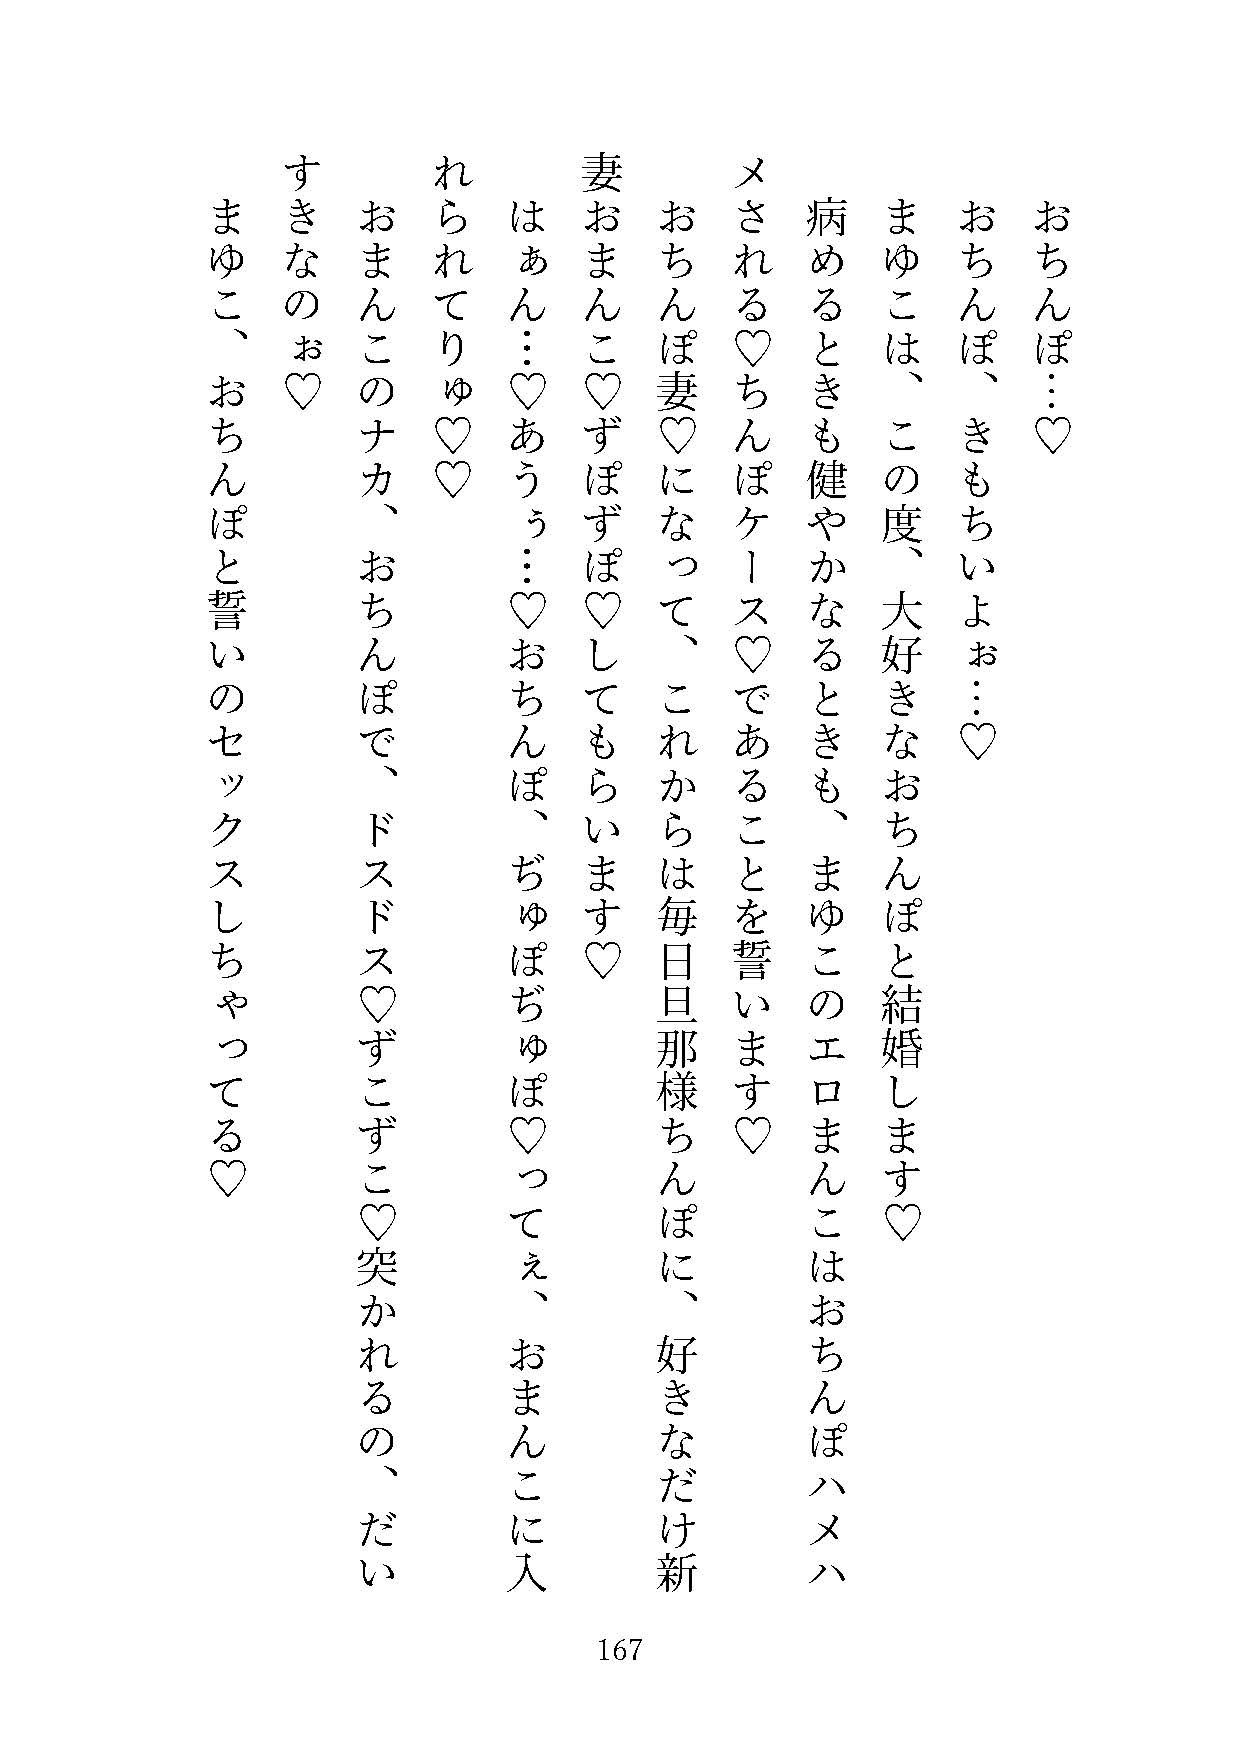 おちんぽ…♡
おちんぽ、きもちいよぉ…♡
まゆこは、この度、大好きなおちんぽと結婚します♡
病めるときも健やかなるときも、まゆこのエロまんこはおちんぽハメハ
メされる♡ちんぽケース♡であることを誓います♡
おちんぽ妻♡になって、これからは毎日旦那様ちんぽに、好きなだけ新
妻おまんこ♡ずぽずぽ♡してもらいます♡
はぁん…♡あうぅ…♡おちんぽ、ぢゅぽぢゅぽ♡ってぇ、おまんこに入
れられてりゅ♡♡
おまんこのナカ、おちんぽで、ドスドス♡ずこずこ♡突かれるの、だい
すきなのぉ♡
まゆこ、おちんぽと誓いのセックスしちゃってる♡
167